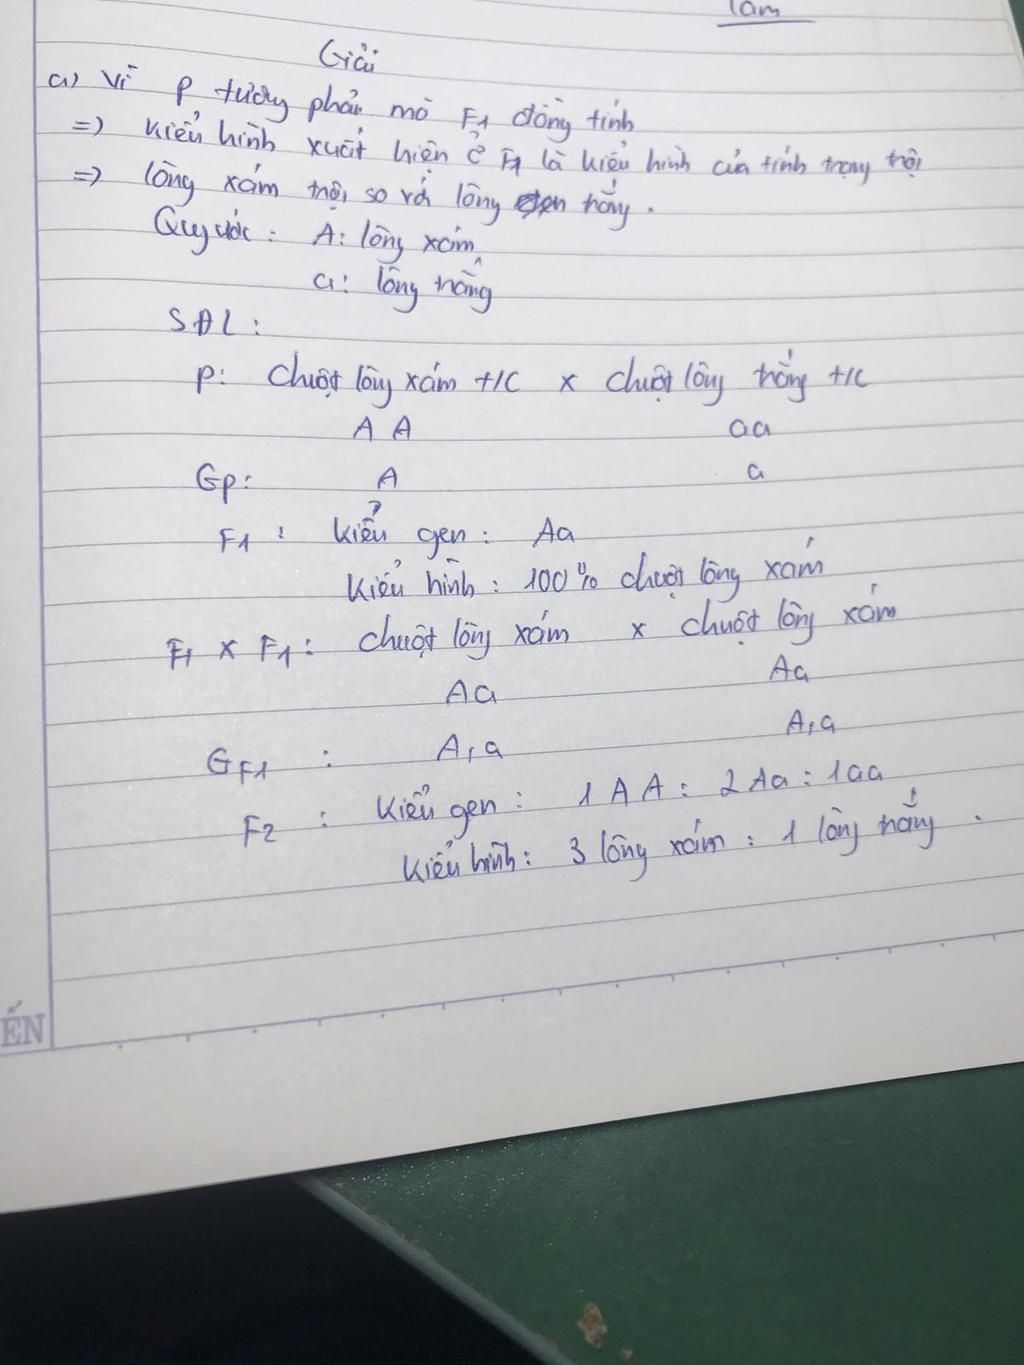 làm
Giải
a) Vì P tương phản mà F1 đồng tính
=> kiểu hình xuất hiện ở F1 là kiểu hình của tính trạng trội
=> lông xám trội so với lông trắng.
Quy ước: A: lông xám
a: lông trắng
SĐL:
P: Chuột lông xám t/c x chuột lông trắng t/c
A A aa
Gp: A a
F1: Kiểu gen: Aa
Kiểu hình: 100% chuột lông xám
F1 x F1: chuột lông xám x chuột lông xám
Aa Aa
GF1: A, a A, a
F2: Kiểu gen: 1 A A : 2 Aa : 1aa
Kiểu hình: 3 lông xám : 1 lông trắng.
ẾN